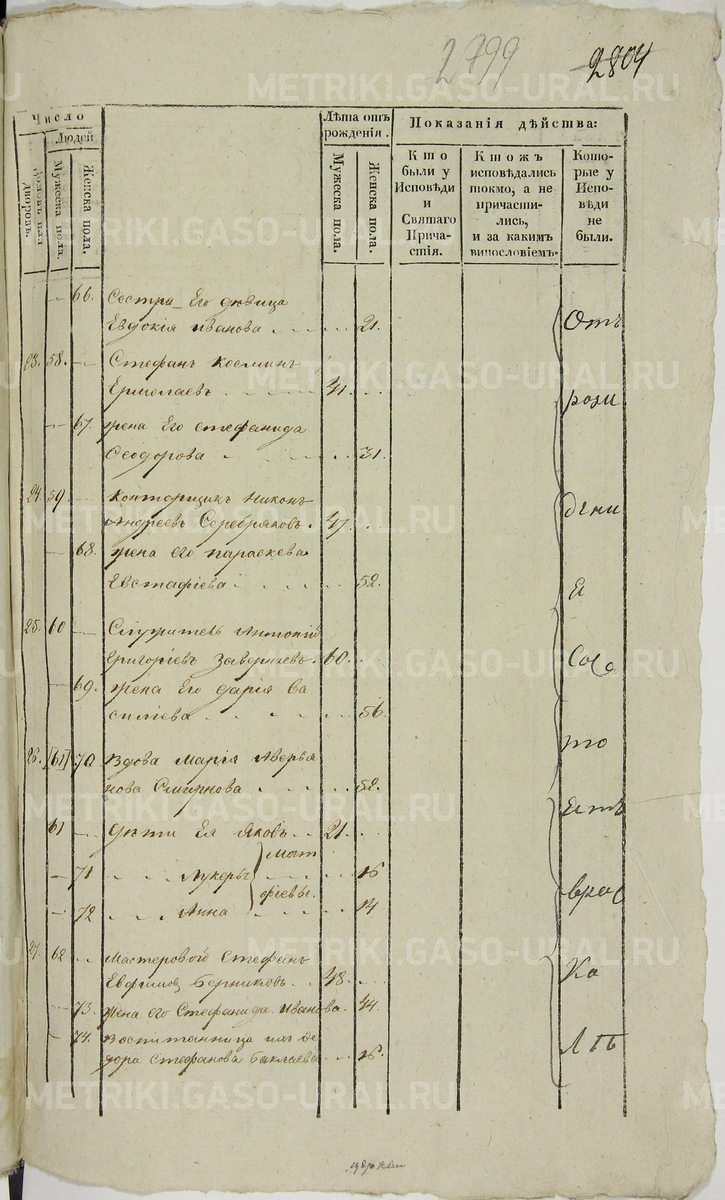 2799 2804
Число
Людей
домовъ или дворовъ.
Мужеска пола.
Женска пола.
Лѣта отъ рожденія.
Мужеска пола.
Женска пола.
Показанія дѣйства:
Кто были у Исповѣди и Святаго Причастія.
Ктожъ исповѣдались токмо, а не причастились, и за какимъ винословіемъ.
Которые у Исповѣди не были.
66. Сестра Его дѣвица
Евдокія иванова 21. Отъ
23. 58. Стефанъ Косминъ
Ермолаевъ 41.
67. жена Его стефанида
Ѳеодорова 31.
24. 59. Конторщикъ Никонъ
андреевъ Серебряковъ. 47.
68. жена его параскева
Евстафіева 52.
25. 60 Служитель Антоній
григоріевъ 60.
69. жена Его дарія ва
силіева 56.
26. [61] 70 вдова марія Аверья
нова Смирнова 52.
61 дѣти Ея Яковъ 21.
71 Лукерья мат 16
фіевы.
72 Анна 14
27. 62 мастеровой Стефанъ
Евфимовъ 48.
73. жена его Стефанида Иванова. 44.
74. Воспитанница ихъ Ѳе
дора Стефанова 16.
METRIKI.GASO-URAL.RU